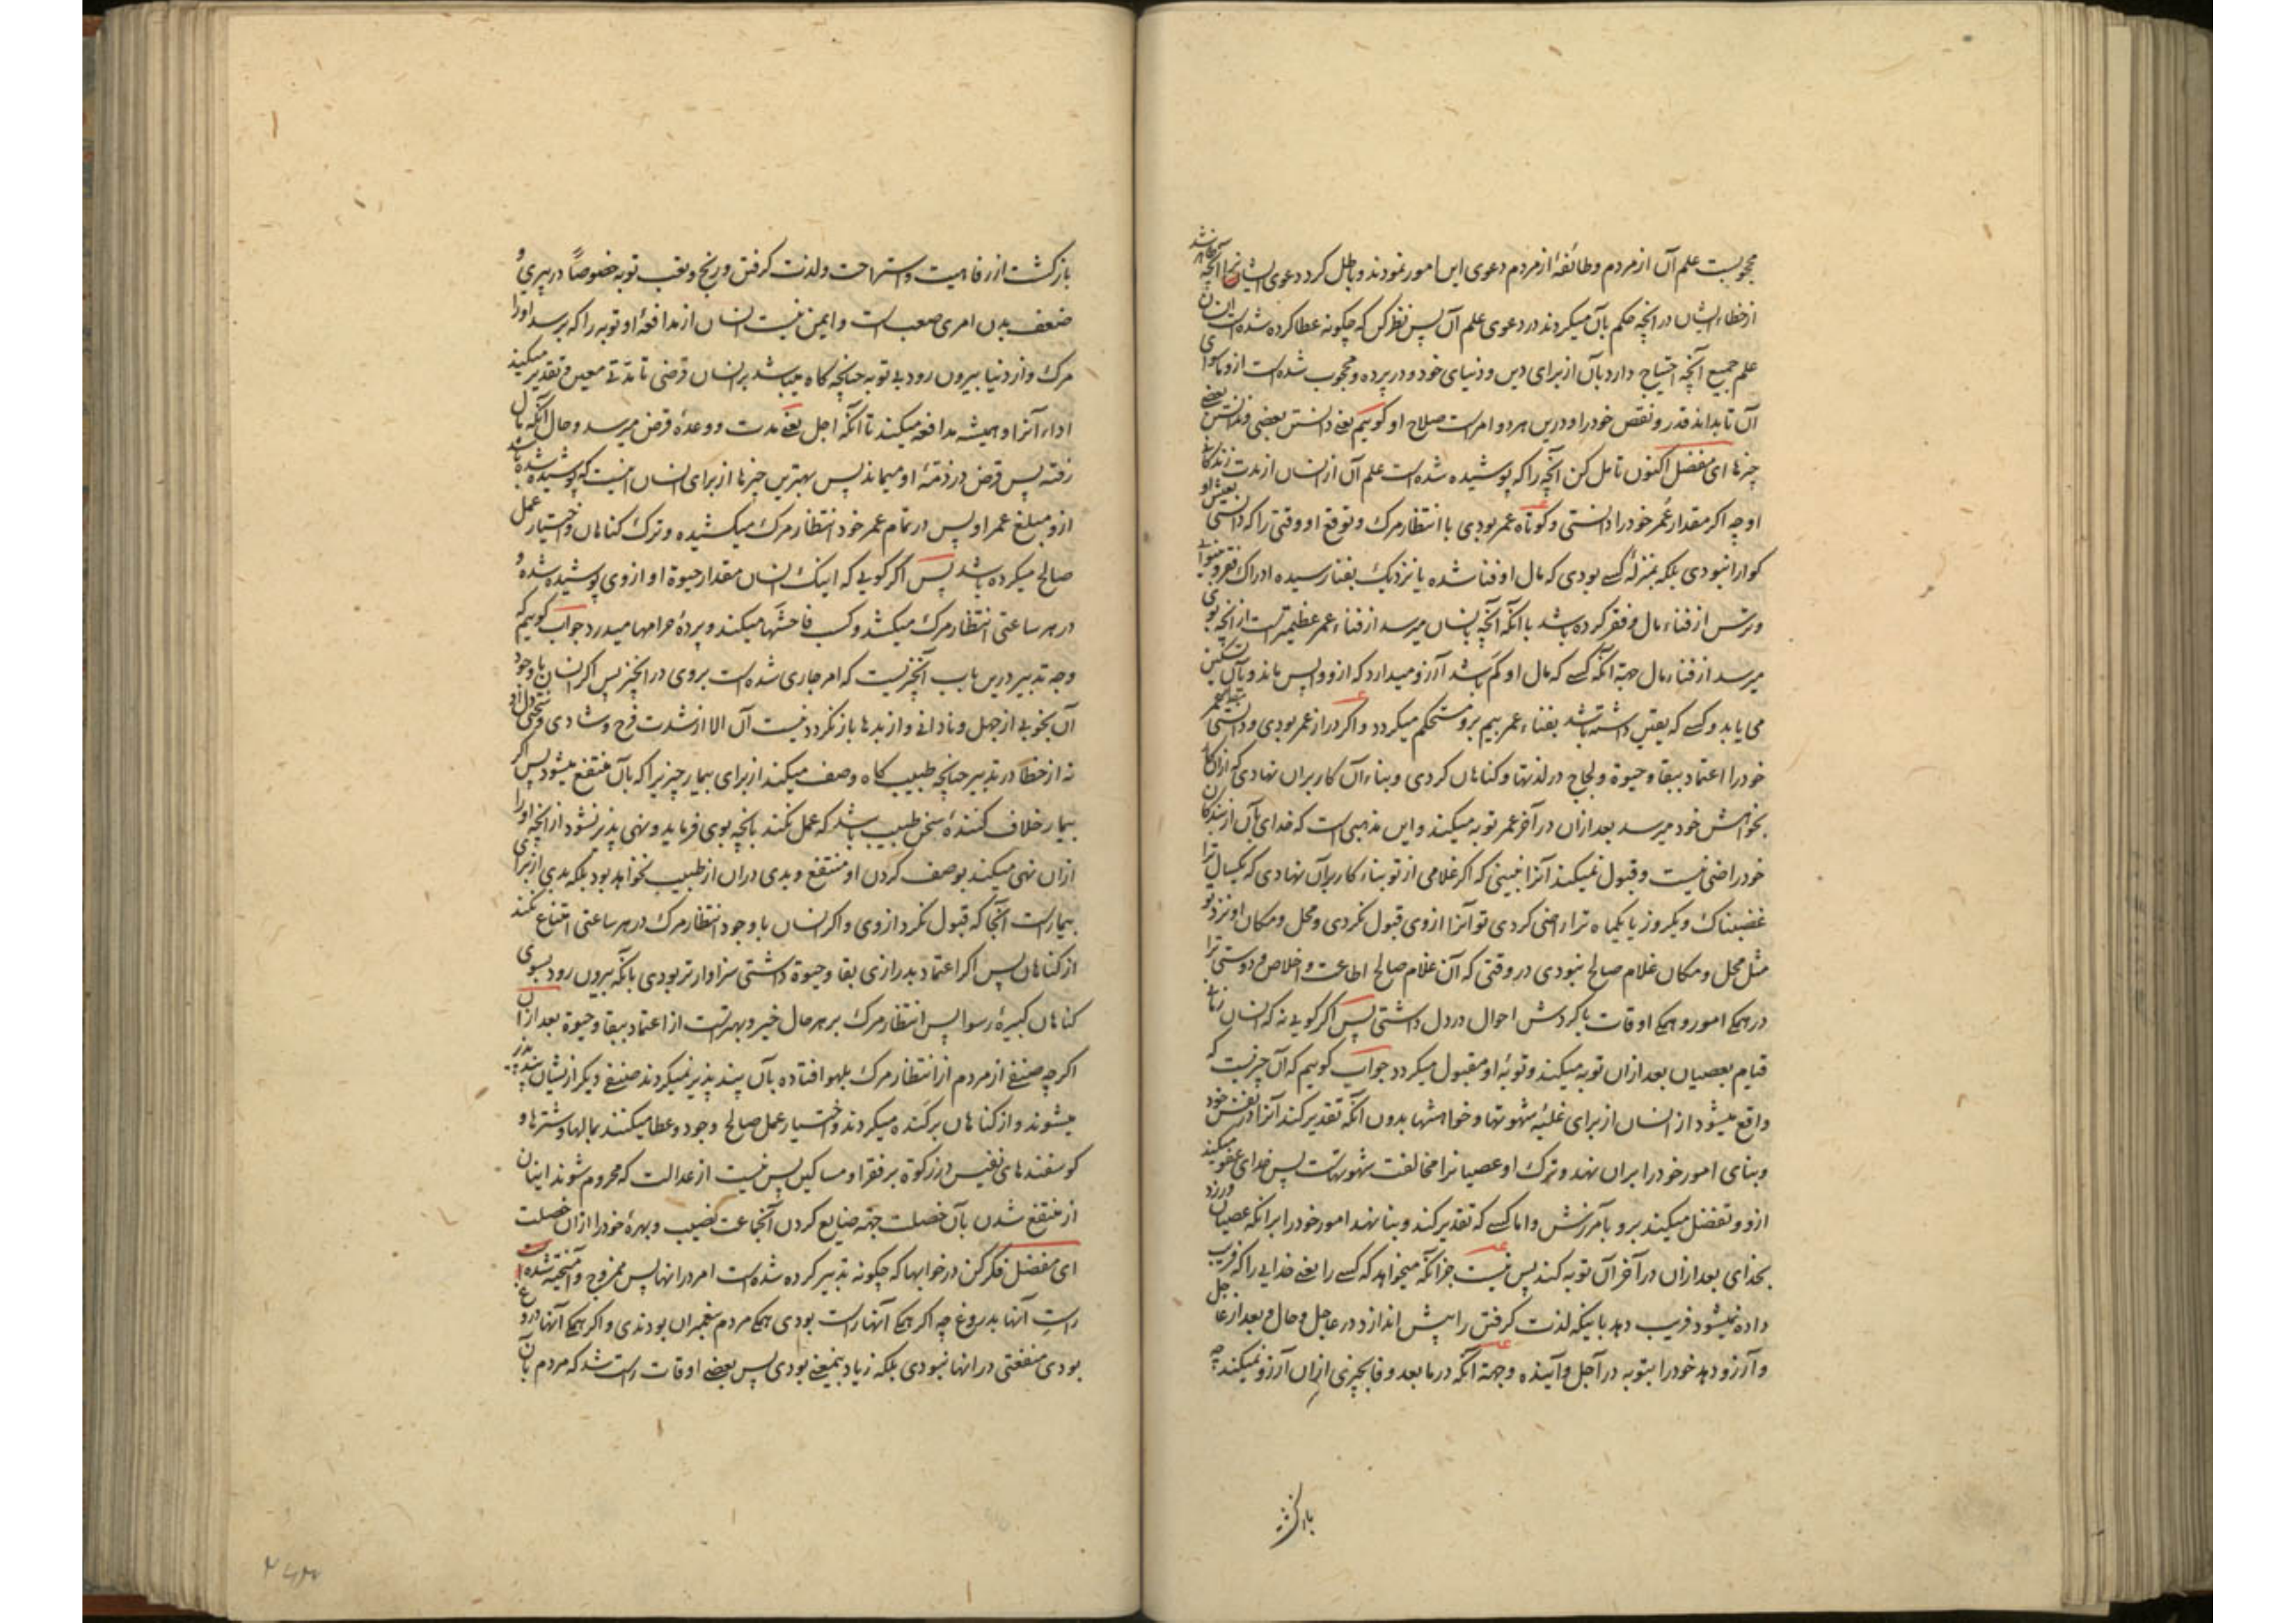 محجوبست علم آن از مردم و طائفهٔ از مردم دعوی این امور نمودند و باطل کرد دعوی ایشانرا آنچه ظاهر شد
از خطاء ایشان در انچه حکم بآن میکردند در دعوی علم آن پس نظر کن که چکونه عطا کرده شده است انسان
علم جمیع آنچه احتیاج دارد بآن از برای دین و دنیای خود و در پرده و محجوب شده است ازو ما سوای
آن تا بداند قدر و نقص خود را و درین هر دو امر است صلاح او کوییم یعنی دانستن بعضی و ندانستن بعضی
چیزها ای مفضل اکنون تامل کن آنچه را که پوشیده شده است علم آن از انسان از مدت زندکانی
او چه اکر مقدار عمر خود را دانستی و کوتاه عمر بودی با انتظار مرک و توقع او وقتی را که دانستی بعیش او
کوارا نبودی بلکه بمنزلهٔ کسے بودی که مال او فنا شده یا نزدیک بفنا رسیده ادراک فقر و بینوایی
و ترس از فناء مال و فقر کرده باشد با آنکه آنچه بانسان میرسد از فناء عمر عظیمتر است از آنچه بوی
میرسد از فناء مال جهة آنکه کسے که مال او کم باشد آرزو میدارد که ازو واپس ماند و بآن تسکین
می یابد و کسے که یقین داشته باشد بفناء عمر بیم برو مستحکم میکردد و اکر دراز عمر بودی و دانستی بقاء عمر
خود را اعتماد ببقا و حیوة و لجاج در لذتها و کناهان کردی و بناء آن کار بران نهادی که ازان کار
بخواهش خود میرسد بعد ازان در آخر عمر توبه میکند و این مذهبی است که خدای بآن از بندکان
خود راضی نیست و قبول نمیکند آنرا نبینی که اکر غلامی از تو بناء کار بران نهادی که یکسال ترا
غضبناک و یکروز یا یکماه ترا راضی کردی تو آنرا ازوی قبول نکردی و محل و مکان او نزد تو
مثل محل و مکان غلام صالح نبودی در وقتی که آن غلام صالح اطاعت و اخلاص و دوستی ترا
در همکی امور و همکی اوقات با کردش احوال در دل داشتی پس اکر کویی نه که انسان زمانی
قیام بعصیان بعد ازان توبه میکند و توبهٔ او مقبول میکردد جواب کوییم که آن چیزیست که
واقع میشود از انسان از برای غلبهٔ شهوتها و خواهشها بدون آنکه تقدیر کند آنرا در نفس خود
و بنای امور خود را بران نهد و ترک او عصیانرا مخالفت شهوتست پس خدای عفو میکند
ازو و تفضل میکند برو بآمرزش و اما کسے که تقدیر کند و بنا نهد امور خود را برانکه عصیان ورزد
بخدای بعد ازان در آخر آن توبه کند پس نیست جز آنکه میخواهد که کسے را یعنی خدایی را که فریب
داده نمیشود فریب دهد باینکه لذت کرفتن را پیش اندازد در عاجل و حال و بعد از عاجل
و آرزو دهد خود را بتوبه در آجل و آینده و جهة آنکه در ما بعد وفا بچیزی ازان آرزو نمیکند چه
بازکشت
بازکشت از رفاهیت و استراحت و لذت کرفتن و رنج و تعب توبه خصوصاً در پیری و
ضعف بدن امری صعب است و ایمن نیست انسان از مدافعهٔ او توبه را که برسد او را
مرک و از دنیا بیرون رود بے توبه چنانچه کاه میباشد بر انسان قرضی تا مدّتے معین و تقدیر میکند
اداء آنرا و همیشه مدافعه میکند تا آنکه اجل یعنے مدت و وعدهٔ قرض میرسد و حال آنکه مال
رفته پس قرض در ذمّهٔ او میماند پس بهترین چیزها از برای انسان اینست که پوشیده شده باشد
ازو مبلغ عمر او پس در تمام عمر خود انتظار مرک میکشیده و ترک کناهان و اختیار عمل
صالح میکرده باشد پس اکر کویی که اینک انسان مقدار حیوة او ازوی پوشیده شده و
در هر ساعتی انتظار مرک میکشد و کسب فاحشها میکند و پردهٔ حرامها میدرد جواب کوییم که
وجه تدبیر درین باب آنچیزیست که امر جاری شده است بروی در انچیز پس اکر انسان با وجود
آن بخوبی از جهل و نادانی و از بدیها باز نکردد نیست آن الا از شدت فرح و شادی و سختی دل او
نه از خطا در تدبیر چنانچه طبیب کاه وصف میکند از برای بیمار چیزیرا که بآن منتفع میشود پس اکر
بیمار خلاف کنندهٔ سخن طبیب باشد که عمل نکند بانچه بوی فرماید و نهی پذیر نشود از آنچه او را
ازان نهی میکند بوصف کردن او منتفع و بدی دران از طبیب نخواهد بود بلکه بدی از برای
بیمار است آنجا که قبول نکرد ازوی و اکر انسان با وجود انتظار مرک در هر ساعتی امتناع نکند
از کناهان پس اکر اعتماد بدرازی بقا و حیوة داشتی سزاوارتر بودی بانکه بیرون رود بسوی
کناهان کبیرهٔ رسوا پس انتظار مرک بر هر حال خیر و بهتر است از اعتماد ببقا و حیوة بعد ازان
اکر چه صنفے از مردم از انتظار مرک بلهو افتاده بآن پند پذیر نمیکردند صنفے دیکر از ایشان پند پذیر
میشوند و از کناهان برکنده میکردند و اختیار عمل صالح وجود و عطا میکنند بمالها و شترها و
کوسفندهای نفیس در زکوة بر فقرا و مساکین پس نیست از عدالت که محروم شوند اینان
از منتفع شدن بآن خصلت جهة ضایع کردن آنجماعت نصیب و بهرهٔ خود را ازان خصلت
ای مفضل فکر کن در خوابها که چکونه تدبیر کرده شده است امر در انها پس ممزوج و آمیخته شده است
راستِ آنها بدروغ چه اکر همکی آنها راست بودی همکی مردم پیغمبران بودندی و اکر همکی آنها دروغ
بودی منفعتی در انها نبودی بلکه زیاد بیمعنے بودی پس بعضے اوقات راست شد که مردم بآن